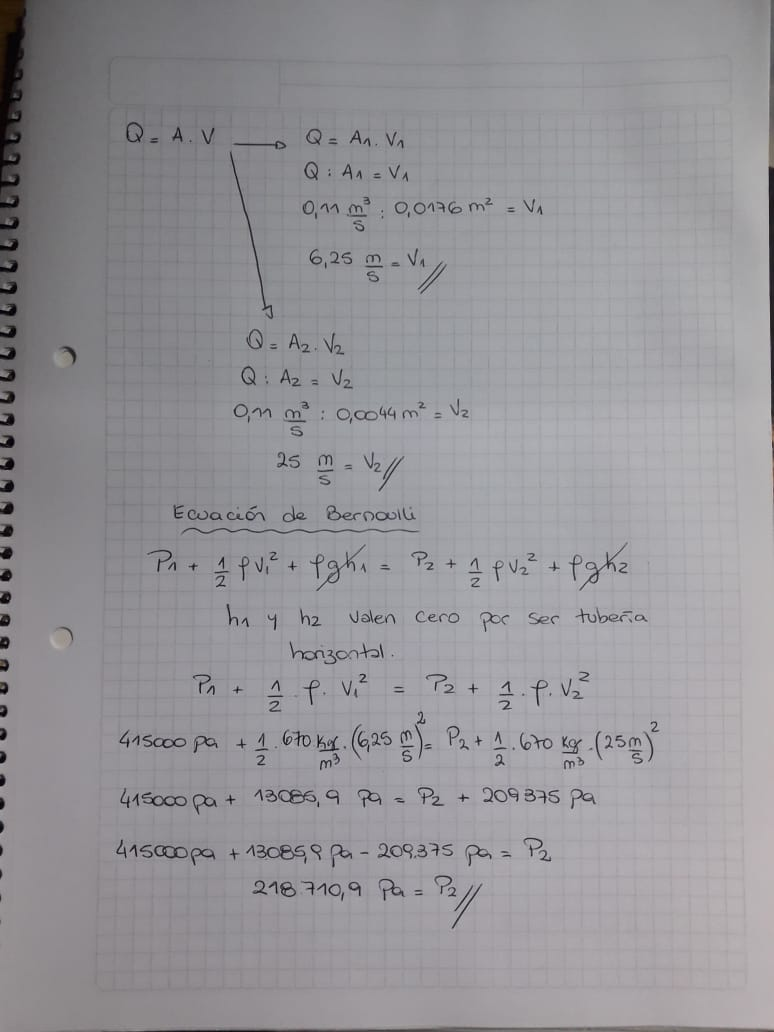 Q = A . V → Q = A1 . V1
Q : A1 = V1
0,11 m³/s : 0,0176 m² = V1
6,25 m/s = V1 //
Q = A2 . V2
Q : A2 = V2
0,11 m³/s : 0,0044 m² = V2
25 m/s = V2 //
Ecuación de Bernoulli
P1 + 1/2 ρV1² + ρgh1 = P2 + 1/2 ρV2² + ρgh2
h1 y h2 valen cero por ser tubería
horizontal.
P1 + 1/2 . ρ . V1² = P2 + 1/2 . ρ . V2²
415000 pa + 1/2 . 670 Kg/m³ . (6,25 m/s)² = P2 + 1/2 . 670 Kg/m³ . (25 m/s)²
415000 pa + 13085,9 pa = P2 + 209375 pa
415000 pa + 13085,9 pa - 209.375 pa = P2
218 710,9 Pa = P2 //